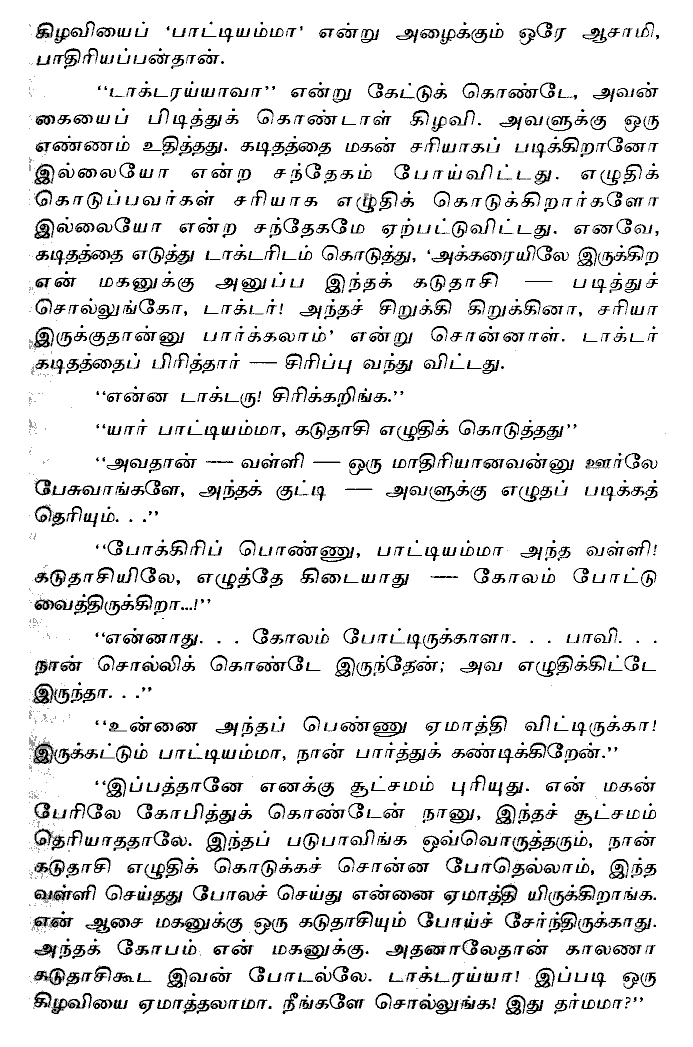 கிழவியைப் ‘பாட்டியம்மா’ என்று அழைக்கும் ஒரே ஆசாமி,
பாதிரியப்பன்தான்.
“டாக்டரய்யாவா” என்று கேட்டுக் கொண்டே, அவன்
கையைப் பிடித்துக் கொண்டாள் கிழவி. அவளுக்கு ஒரு
எண்ணம் உதித்தது. கடிதத்தை மகன் சரியாகப் படிக்கிறானோ
இல்லையோ என்ற சந்தேகம் போய்விட்டது. எழுதிக்
கொடுப்பவர்கள் சரியாக எழுதிக் கொடுக்கிறார்களோ
இல்லையோ என்ற சந்தேகமே ஏற்பட்டுவிட்டது. எனவே,
கடிதத்தை எடுத்து டாக்டரிடம் கொடுத்து, ‘அக்கரையிலே இருக்கிற
என் மகனுக்கு அனுப்ப இந்தக் கடுதாசி — படித்துச்
சொல்லுங்கோ, டாக்டர்! அந்தச் சிறுக்கி கிறுக்கினா, சரியா
இருக்குதாண்ணு பார்க்கலாம்’ என்று சொன்னாள். டாக்டர்
கடிதத்தைப் பிரித்தார் — சிரிப்பு வந்து விட்டது.
“என்ன டாக்டரு! சிரிக்கறிங்க.”
“யார் பாட்டியம்மா, கடுதாசி எழுதிக் கொடுத்தது”
“அவதான் — வள்ளி — ஒரு மாதிரியானவண்னு ஊர்லே
பேசுவாங்களே, அந்தக் குட்டி — அவளுக்கு எழுதப் படிக்கத்
தெரியும். . .”
“போக்கிரிப் பொண்ணு, பாட்டியம்மா அந்த வள்ளி!
கடுதாசியிலே, எழுத்தே கிடையாது — கோலம் போட்டு
வைத்திருக்கிறா...!”
“என்னாது. . . கோலம் போட்டிருக்காளா. . . பாவி. . .
நான் சொல்லிக் கொண்டே இருந்தேன்; அவ எழுதிக்கிட்டே
இருந்தா. . .”
“உன்னை அந்தப் பெண்ணு ஏமாத்தி விட்டிருக்கா!
இருக்கட்டும் பாட்டியம்மா, நான் பார்த்துக் கண்டிக்கிறேன்.”
“இப்பத்தானே எனக்கு சூட்சமம் புரியுது. என் மகன்
பேரிலே கோபித்துக் கொண்டேன் நானு, இந்தச் சூட்சமம்
தெரியாததாலே. இந்தப் படுபாவிங்க ஒவ்வொருத்தரும், நான்
கடுதாசி எழுதிக் கொடுக்கச் சொன்ன போதெல்லாம், இந்த
வள்ளி செய்தது போலச் செய்து என்னை ஏமாத்தி யிருக்கிறாங்க.
என் ஆசை மகனுக்கு ஒரு கடுதாசியும் போய்ச் சேர்ந்திருக்காது.
அந்தக் கோபம் என் மகனுக்கு. அதனாலேதான் காலணா
கடுதாசிகூட இவன் போடல்லே. டாக்டரய்யா! இப்படி ஒரு
கிழவியை ஏமாத்தலாமா. நீங்களே சொல்லுங்க! இது தர்மமா?”